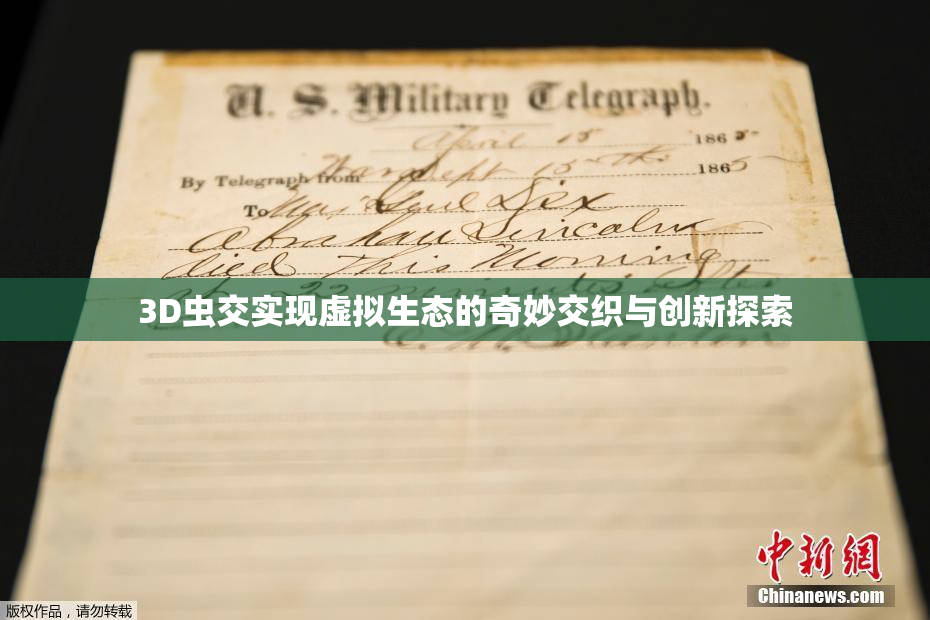 U. S. Military Telegraph.
April 15 1865
By Telegraph from War Dept 15th 1865
To Maj Genl Dix
Abraham Lincoln
died This Morning
at 22 minutes after
3D虫交实现虚拟生态的奇妙交织与创新探索
E. M. Stanton
中新网
Chinanews.com
版权作品，请勿转载